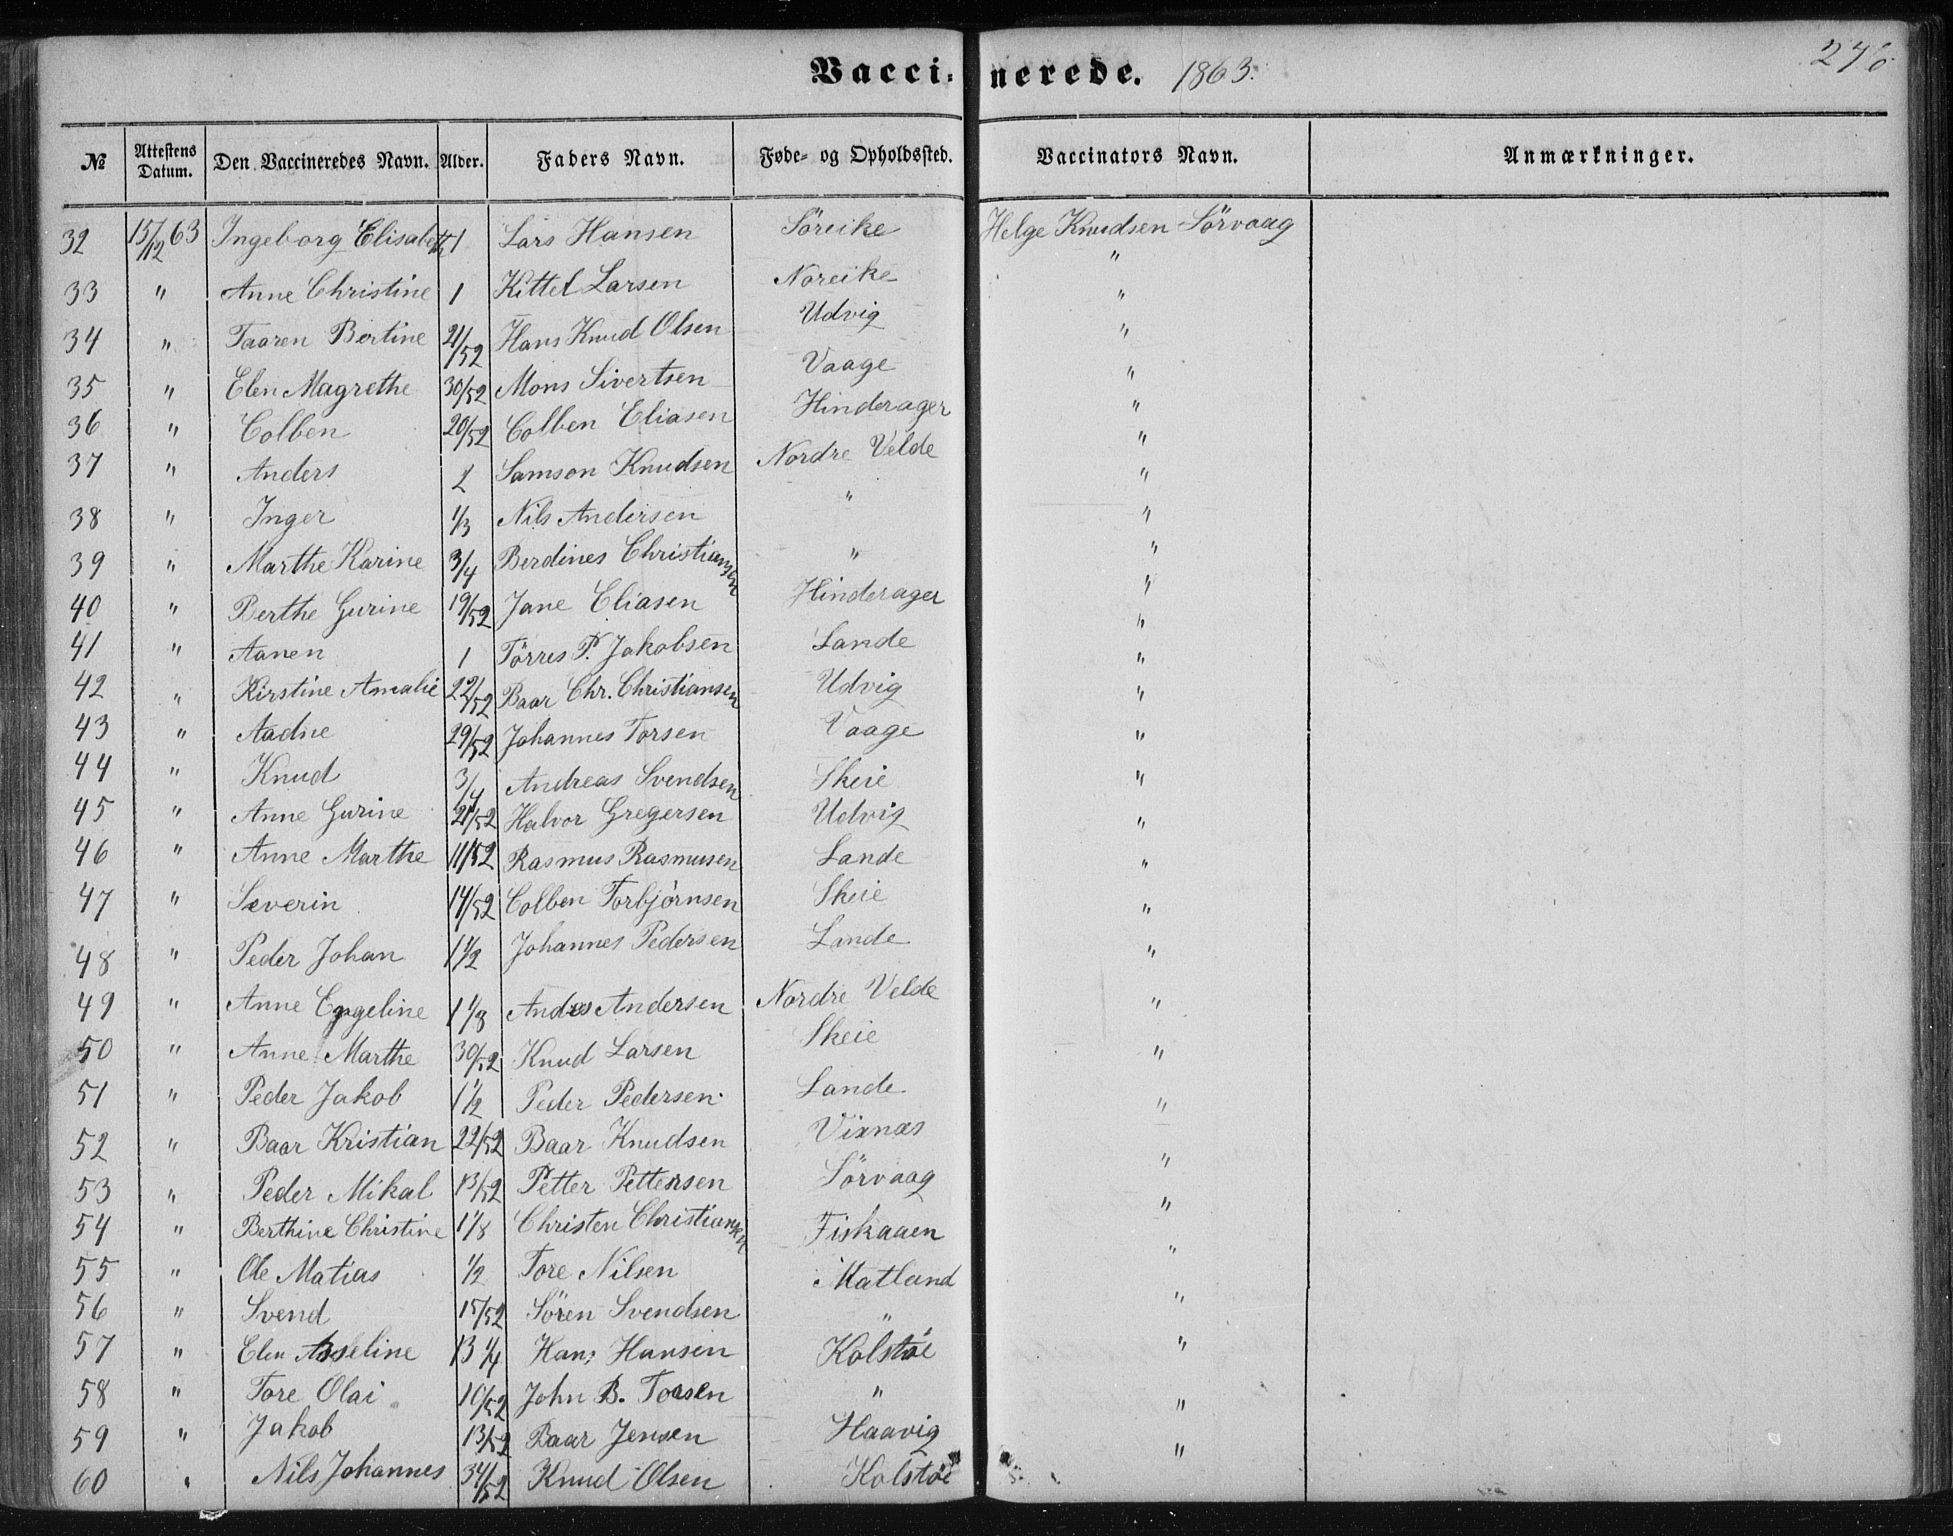 Vaccinerede. 1863.
№ | Attestens Datum. | Den Vaccineredes Navn. | Alder. | Faders Navn. | Føde- og Opholdssted. | Vaccinators Navn. | Anmærkninger.
32 15/12 63 Ingeborg Elisabeth 1 Lars Hansen Söreike Helge Knudsen Sörvaag
33 " Anne Christine 1 Kittel Larsen Noreike "
34 " Taaren Bertine 21/52 Hans Knud Olsen Udvig "
35 " Elen Magrethe 30/52 Mons Sivertsen Vaage "
36 " Colben 20/52 Colben Eliasen Hinderager "
37 " Anders 2 Samson Knudsen Nordre Velde "
38 " Inger 1/3 Nils Andersen " "
39 " Marthe Karine 3/4 Berdines Christiansen " "
40 " Berthe Gurine 19/52 Jane Eliasen Hinderager "
41 " Aanen 1 Törres P. Jakobsen Lande "
42 " Kirstine Amalie 22/52 Baar Chr. Christiansen Udvig "
43 " Aadne 29/52 Johannes Torsen Vaage "
44 " Knud 3/4 Andreas Svendsen Skeie "
45 " Anne Gurine 21/52 Halvor Gregersen Udvig "
46 " Anne Marthe 11/52 Rasmus Rasmusen Lande "
47 " Severin 14/52 Colben Torbjörnsen Skeie "
48 " Peder Johan 1 1/2 Johannes Pedersen Lande "
49 " Anne Engeline 1 1/8 Andres Andersen Nordre Velde "
50 " Anne Marthe 30/52 Knud Larsen Skeie "
51 " Peder Jakob 1 1/2 Peder Pedersen Lande "
52 " Baar Kristian 22/52 Baar Knudsen Vixnæs "
53 " Peder Mikal 13/52 Petter Pettersen Sörvaag "
54 " Berthine Christine 1 1/8 Christen Christiansen Fiskaaen "
55 " Ole Matias 1/2 Tore Nilsen Matland "
56 " Svend 15/52 Sören Svendsen " "
57 " Elen Asseline 13 1/4 Hans Hansen Kolstöe "
58 " Tore Olai 10/52 John B. Torsen " "
59 " Jakob 13/52 Baar Jensen Haavig "
60 " Nils Johannes 34/52 Knud Olsen Kolstöe "